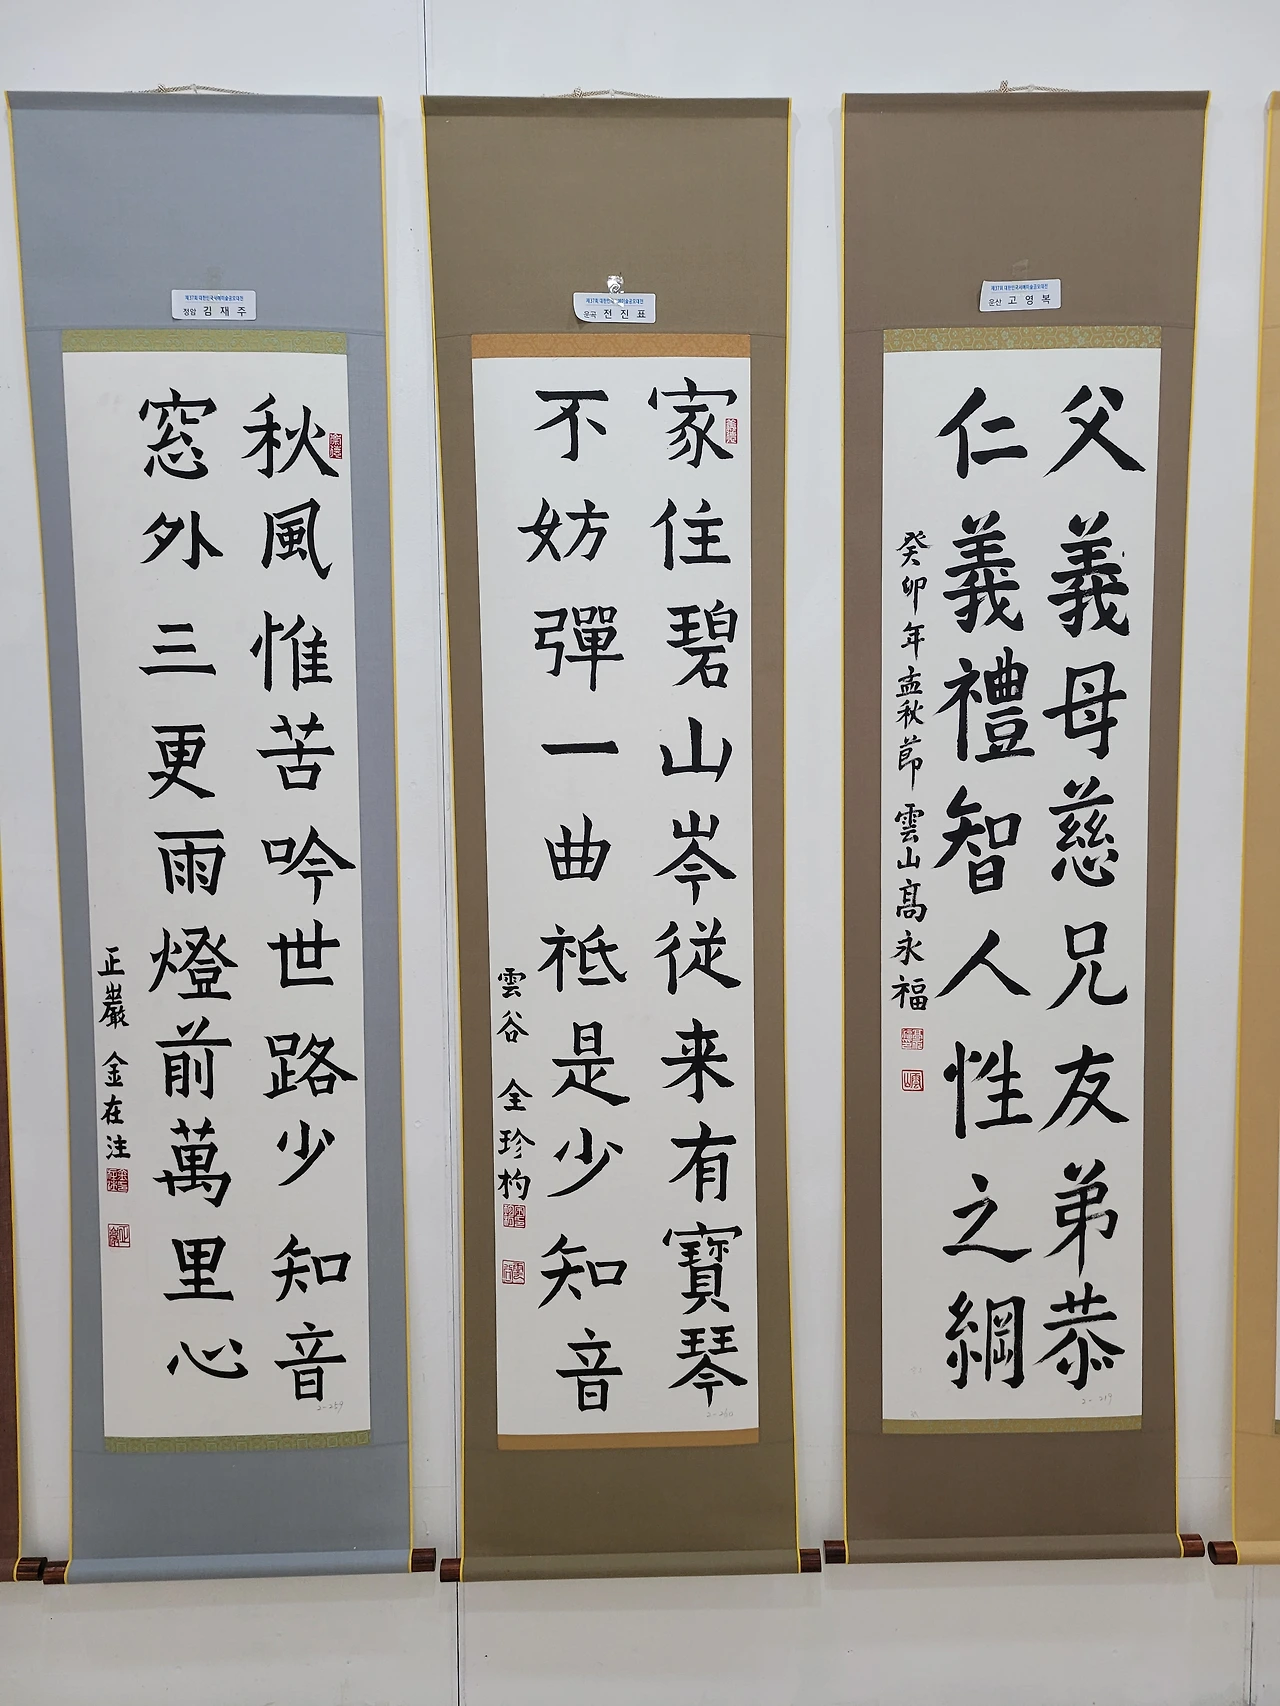 제37회 대한민국서예미술공모대전
정암 김재주
秋風惟苦吟世路少知音
窓外三更雨燈前萬里心
正巖 金在注
2-259
제37회 대한민국서예미술공모대전
운곡 전진표
家住碧山岑從来有寶琴
不妨彈一曲祗是少知音
雲谷 全珍杓
제37회 대한민국서예미술공모대전
운산 고영복
父義母慈兄友弟恭
仁義禮智人性之綱
癸卯年孟秋節 雲山高永福
2-219